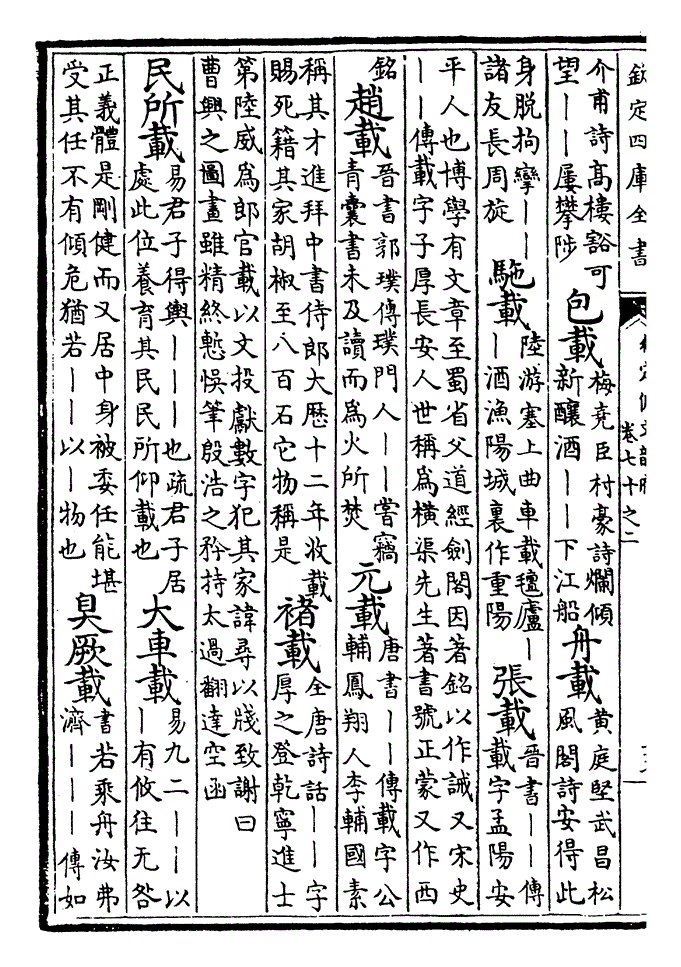 欽定四庫全書
卷七十之二
介甫詩高樓豁可
望――屢攀陟
包載
梅堯臣村豪詩爛傾
新釀酒――下江船
舟載
黃庭堅武昌松
風閣詩安得此
身脫拘攣――
諸友長周旋
駞載
陸游塞上曲車載氊廬―
―酒漁陽城裏作重陽
張載
晉書――傳
載字孟陽安
平人也博學有文章至蜀省父道經劍閣因著銘以作誡又宋史
――傳載字子厚長安人世稱為橫渠先生著書號正蒙又作西
銘
趙載
晉書郭璞傳璞門人――嘗竊
青囊書未及讀而為火所焚
元載
唐書――傳載字公
輔鳳翔人李輔國素
稱其才進拜中書侍郎大歷十二年收載
賜死籍其家胡椒至八百石它物稱是
褚載
全唐詩話――字
厚之登乾寧進士
第陸威為郎官載以文投獻數字犯其家諱尋以牋致謝曰
曹興之圖畫雖精終慙悞筆殷浩之矜持太過翻達空函
民所載
易君子得輿―――也疏君子居
處此位養育其民民所仰載也
大車載
易九二――以
―有攸往无咎
正義體是剛健而又居中身被委任能堪
受其任不有傾危猶若――以―物也
臭厥載
書若乘舟汝弗
濟―――傳如